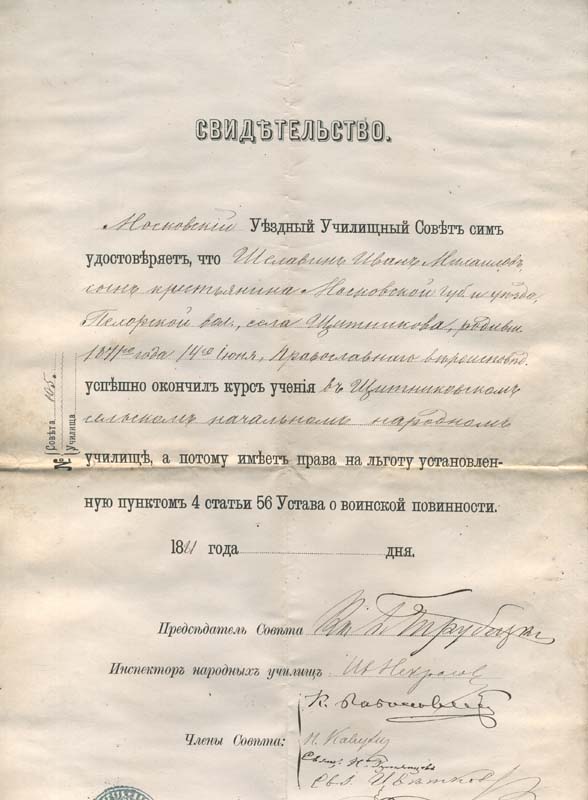 СВИДѢТЕЛЬСТВО.
Московскій Уѣздный Училищный Совѣтъ симъ
удостовѣряетъ, что Шелавинъ Иванъ Михаиловъ,
сынъ крестьянина Московской губ. и уѣзда,
вол., села Щитникова, родивш.
года 14го Іюня, Православнаго вѣроисповѣд.
успѣшно окончилъ курсъ ученія въ Щитниковскомъ
сельскомъ начальномъ народномъ
училищѣ, а потому имѣетъ права на льготу установлен-
ную пунктомъ 4 статьи 56 Устава о воинской повинности.
18 года дня.
№ Совѣта 105.
Училища
Предсѣдатель Совѣта Кн. Трубецк
Инспекторъ народныхъ училищъ Некрасов
Члены Совѣта:
Свящ.
Свящ. Цвѣтков